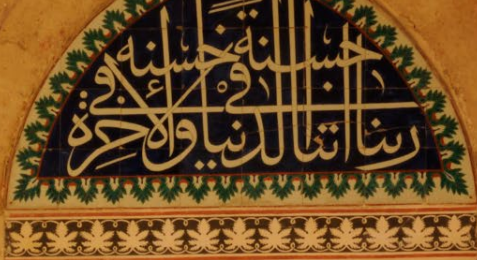 ربنا اتنا فى الدنيا حسنة وفى الاخرة حسنه